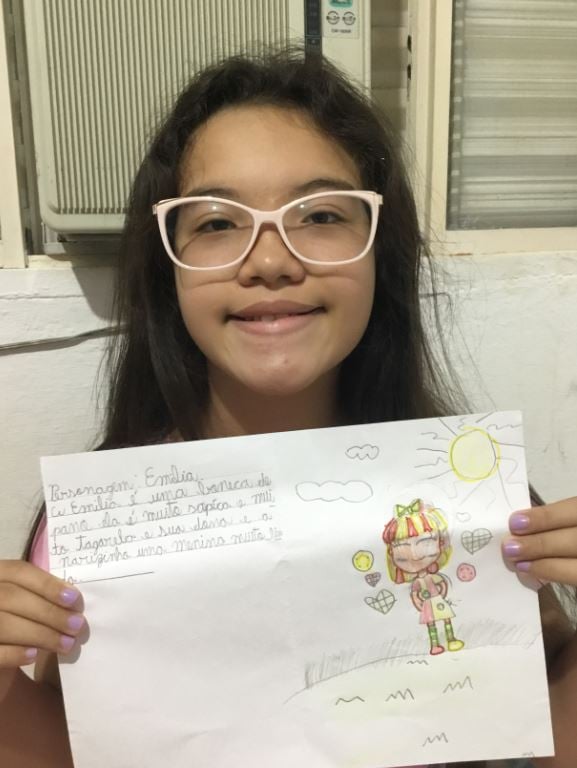 Personagem: Emília
a Emília é uma boneca de
pano ela é muito sapéca e mui
to tagarela e sua dona e a
narizinho uma menina muito li
da